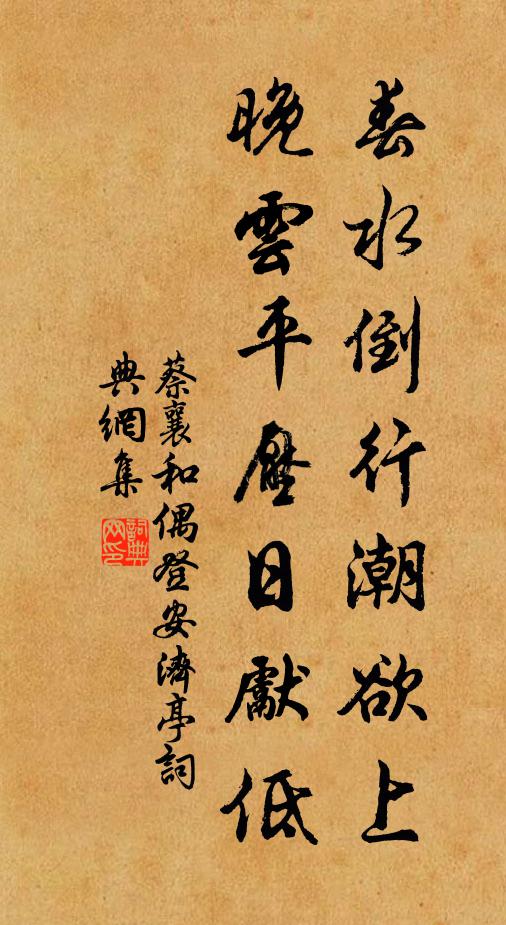 春水倒行潮欲上
晚雲平壓日獻低
蔡襄和偶登安濟亭詞
典網集
詞典
网印